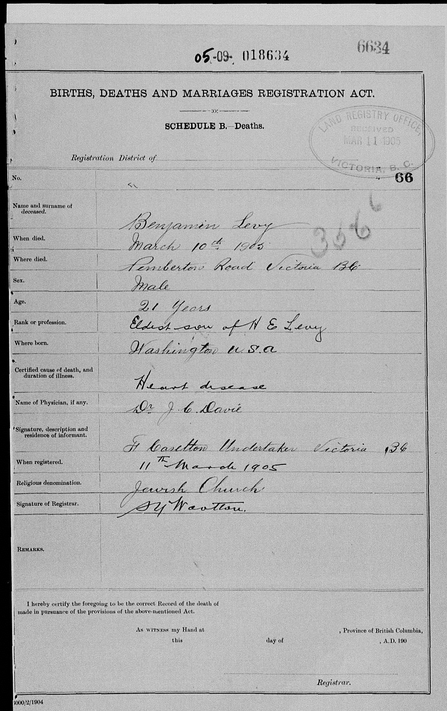 05-09-018634
6634
BIRTHS, DEATHS AND MARRIAGES REGISTRATION ACT.
SCHEDULE B.—Deaths.
LAND REGISTRY OFFICE,
RECEIVED
MAR 11 1905
VICTORIA, B. C.
Registration District of
No. 66
Name and surname of deceased. Benjamin Levy
When died. March 10th 1905
Where died. Pemberton Road Victoria BC
Sex. Male
Age. 21 Years
Rank or profession. Eldest son of H E Levy
Where born. Washington U.S.A
Certified cause of death, and duration of illness. Heart disease
Name of Physician, if any. Dr J. C. Davie
Signature, description and residence of informant. Undertaker Victoria BC
When registered. 11th March 1905
Religious denomination. Jewish Church
Signature of Registrar. S Y Wootton
REMARKS.
I hereby certify the foregoing to be the correct Record of the death of
made in pursuance of the provisions of the above-mentioned Act.
AS WITNESS my Hand at , Province of British Columbia,
this day of , A.D. 190
Registrar.
1000/2/1904